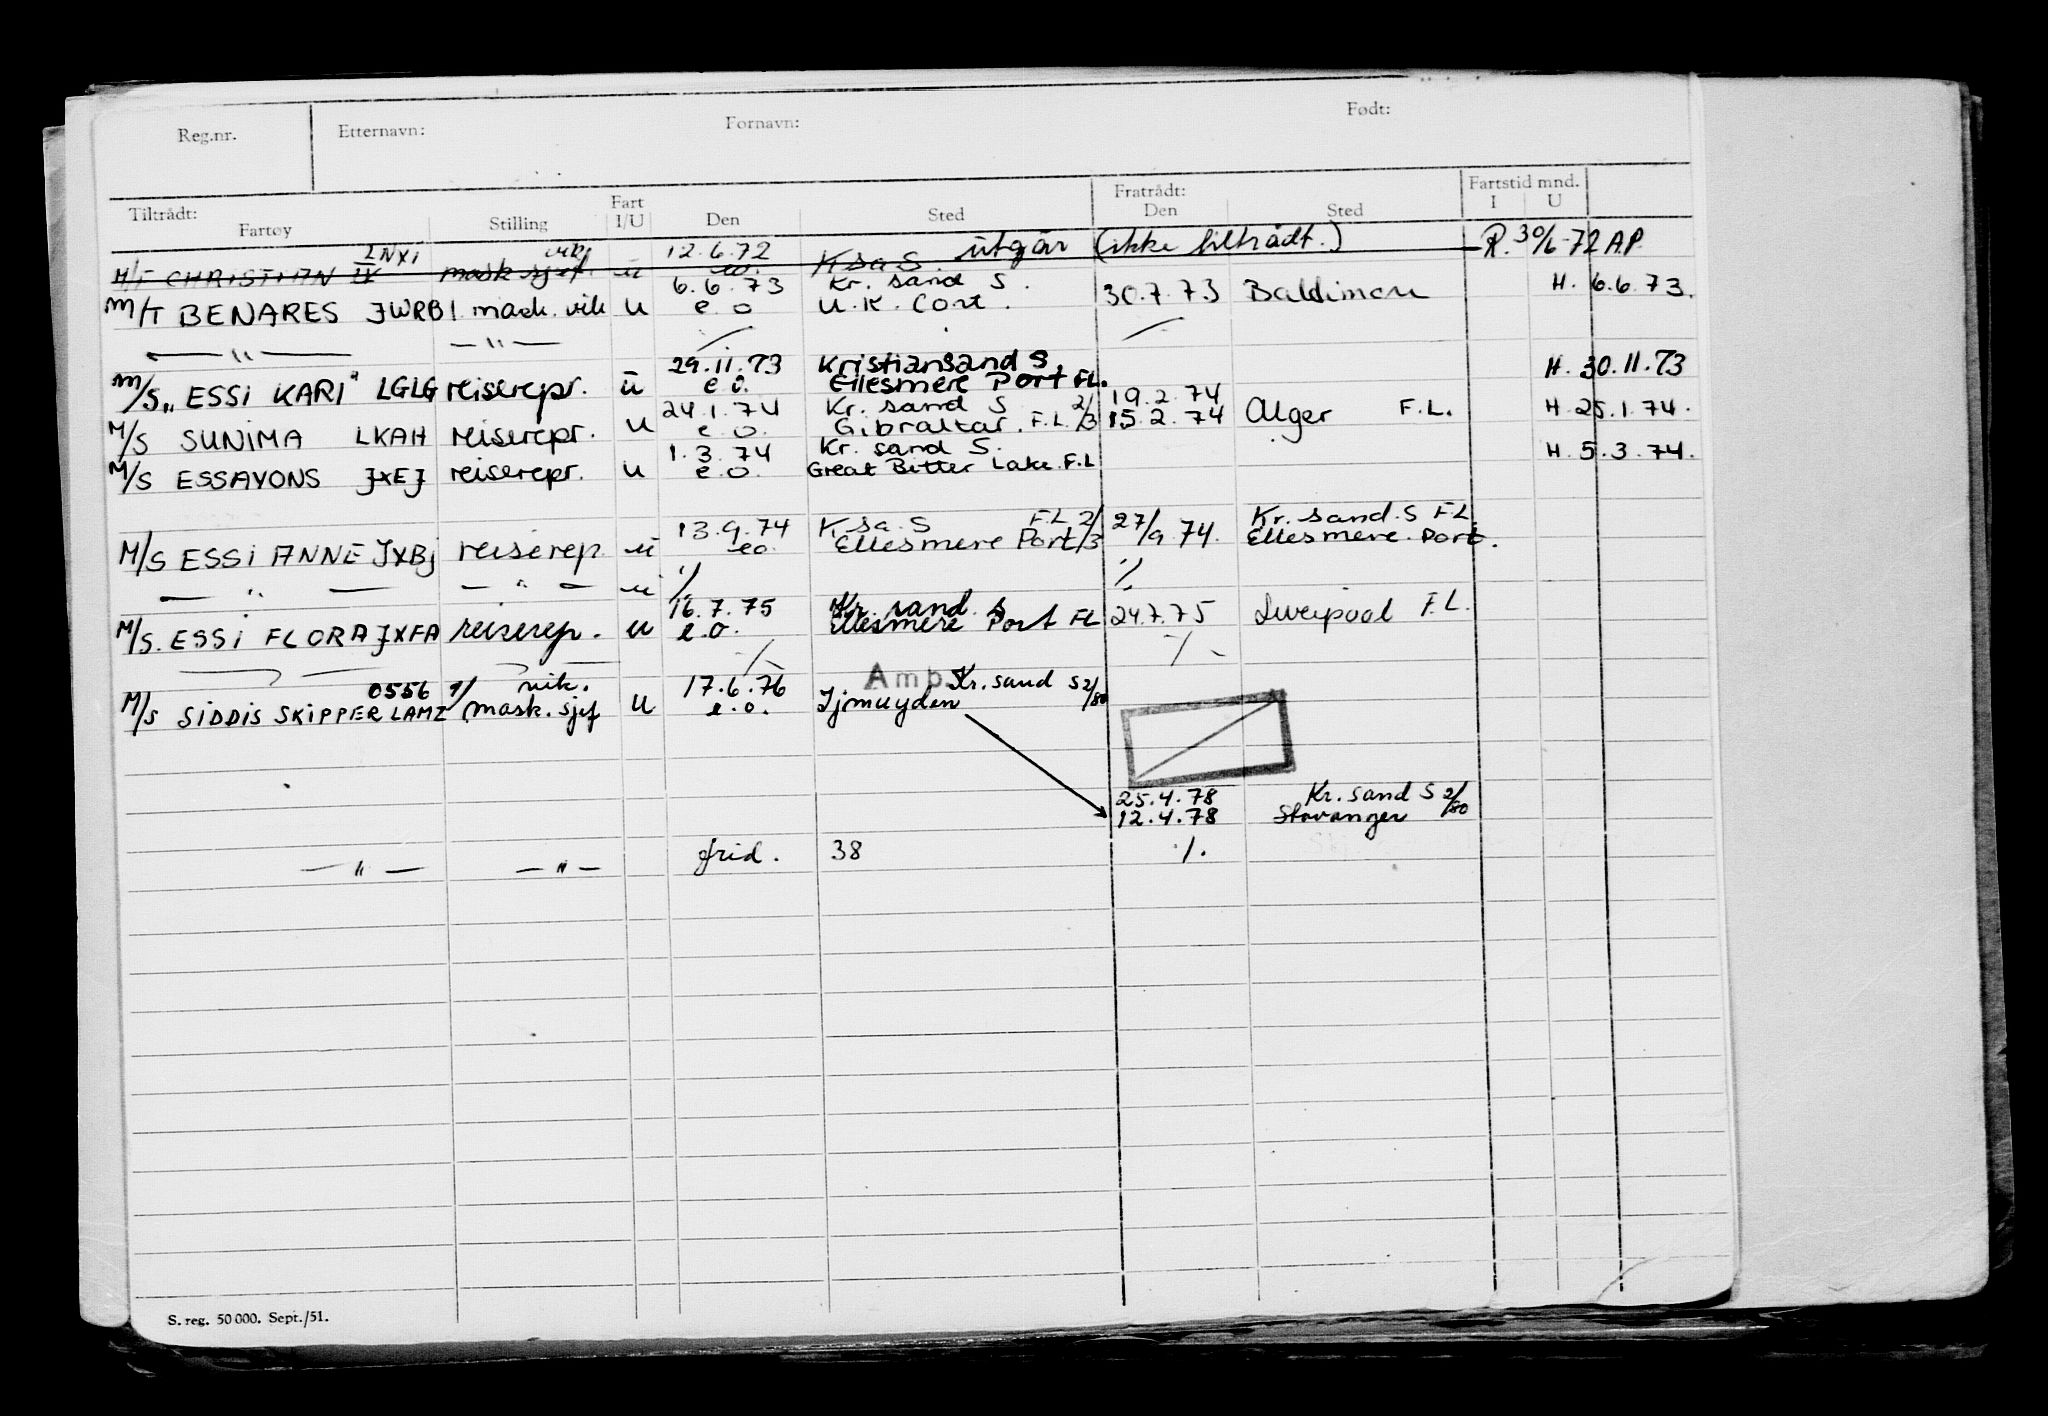 Reg.nr. Etternavn: Fornavn: Født:
Tiltrådt: Fratrådt: Fartstid mnd.
Fartøy Stilling Fart I/U Den Sted Den Sted I U
LNXI vik. 12.6.72 utgår (ikke tiltrådt.) R. 30/6-72 AP.
M/T CHRISTIAN IX mask sjef. u eo. K sa S
6.6.73 Kr. sand S. H. 6.6.73.
M/T BENARES JWRB 1. mask. vik u e.o U.K. Cont. 30.7.73 Baltimore
— " — — " — ⁒ ⁒
29.11.73 Kristiansand S. H. 30.11.73
M/S „ESSI KARI" LGLG reiserepr. u e.o. Ellesmere Port FL. 19.2.74
24.1.74 Kr. sand S 2/3 15.2.74 Alger F.L. H. 25.1.74.
M/S SUNIMA LKAH reiserepr. u e.o. Gibraltar. F.L.
1.3.74 Kr. sand S. H. 5.3.74.
M/S ESSAYONS JXEJ reiserepr. u e.o. Great Bitter Lake. F.L
13.9.74 K sa. S F.L 2/3 27/9 74. Kr. sand. S F.L.
M/S ESSI ANNE JXBJ reiserep. u eo. Ellesmere Port Ellesmere. Port.
— " — — " — u ⁒ ⁒
16.7.75 Kr. sand. S
M/S. ESSI FLORA JXFA reiserep. u e.o. Ellesmere Port FL 24.7.75 Liverpool F.L.
⁒ ⁒
0556 9/ vik. 17.6.76 Amb. Kr. sand S 2/80
M/S SIDDIS SKIPPER LAMZ mask. sjef u e.o. Ijmuyden
25.4.78 Kr. sand S 2/80
12.4.78 Stavanger
— " — — " — frid. 38 ⁒
S. reg. 50 000. Sept./51.